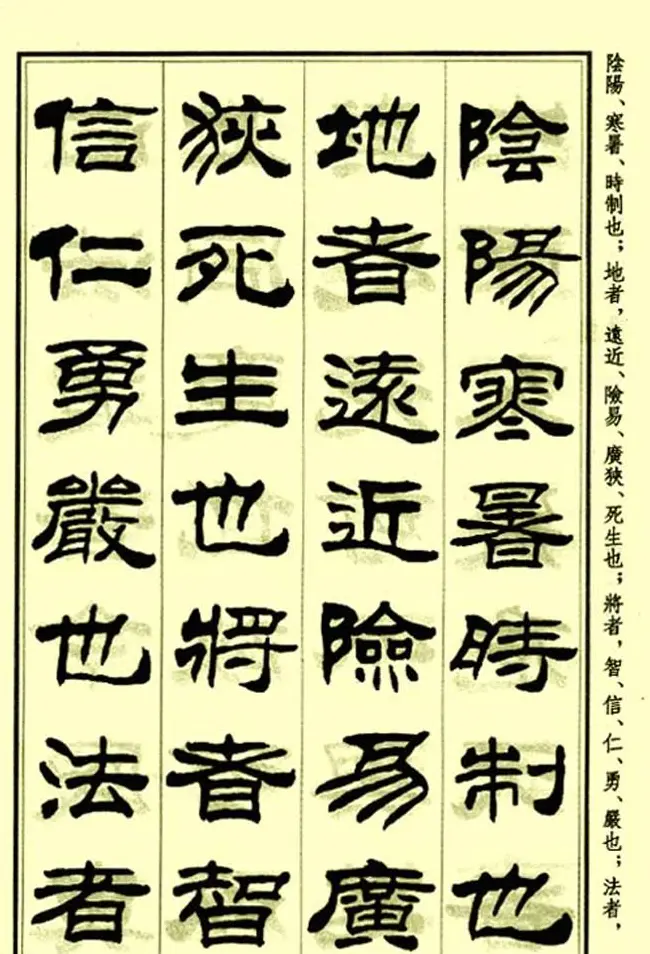 陰陽、寒暑、時制也；地者，遠近、險易、廣狹、死生也；將者，智、信、仁、勇、嚴也；法者，
陰陽寒暑時制也
地者遠近險易廣
狹死生也將者智
信仁勇嚴也法者